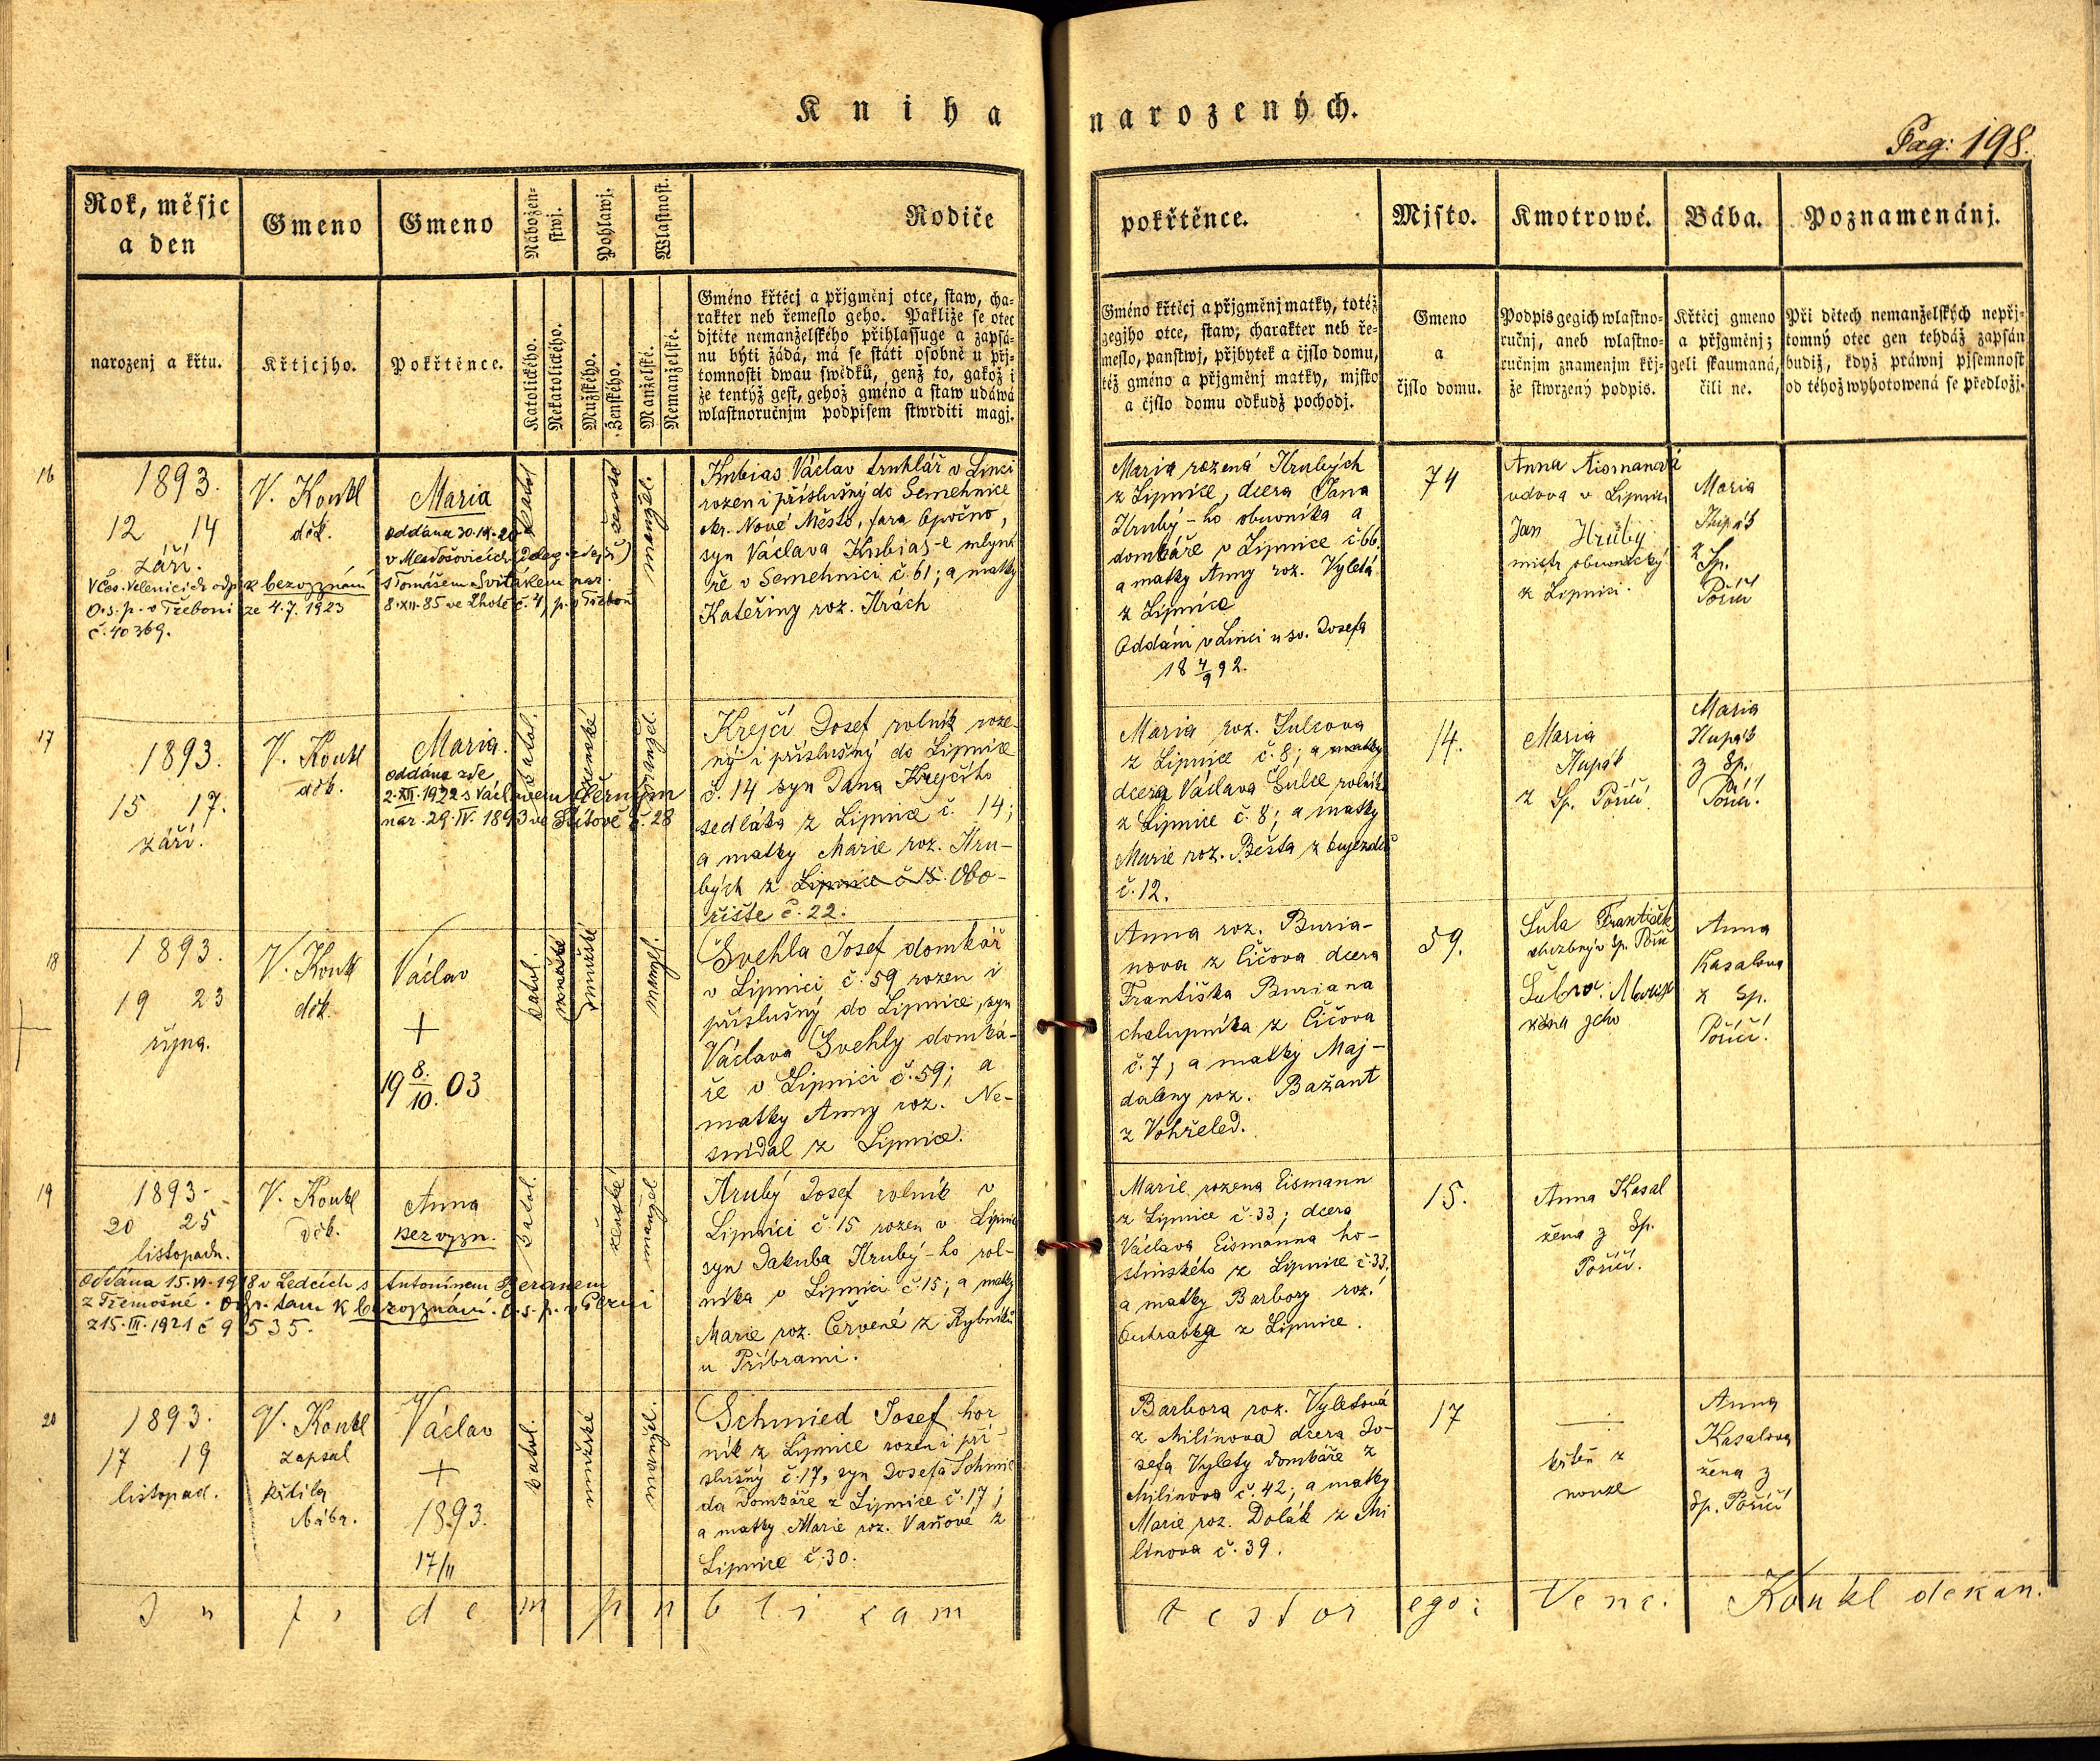 Kniha narozených.
Pag: 198.
Rok, měsjc
a den
narozenj a křtu.
Gmeno
Křtjcjho.
Gmeno
Pokřtěnce.
Nábožen-
stwj.
Katolického.
Nekatolického.
Pohlawj.
Mužského.
Ženského.
Wlastnost.
Manželské.
Nemanželské.
Rodiče
Gméno křtěcj a přjgměnj otce, staw, cha-
rakter neb řemeslo geho. Pakliže se otec
djtěte nemanželského přihlassuge a zapsá-
nu býti žádá, má se státi osobně u přj-
tomnosti dwau swědků, genž to, gakož i
že tentýž gest, gehož gméno a staw udáwá
wlastnoručnjm podpisem stwrditi magj.
pokřtěnce.
Gméno křtěcj a přjgměnj matky, totéž
gegjho otce, staw, charakter neb ře-
meslo, panstwj, přjbytek a čjslo domu,
též gméno a přjgměnj matky, mjsto
a čjslo domu odkudž pochodj.
Mjsto.
Gmeno
a
čjslo domu.
Kmotrowé.
Podpis gegich wlastno-
ručnj, aneb wlastno-
ručnjm znamenjm křj-
že stwrzený podpis.
Bába.
Křtěcj gmeno
a přjgměnj; z
geli skaumaná,
čili ne.
Poznamenánj.
Při dětech nemanželských nepřj-
tomný otec gen tehdáž zapsán
budiž, když práwnj pjsemnost
od téhož wyhotowená se předložj.
16
1893.
12 14
září.
V Čes. Velenicích odp. k bezvyznání
O.s.p. v Třeboni ze 4.7.1923
č. 40369.
V. Konkl
děk.
Maria
oddána 30.IX.20
s Tomášem Svitákem nar.
8.XII.85 ve Lhotě č. 4, p.
katol
ženské
manžel.
Kubias Václav truhlář v Linci
rozen i příslušný do Semehnice
okr. Nové Město, fara Opočno,
syn Václava Kubias-e mlyná
ře v Semehnici č. 61; a matky
Kateřiny roz. Hrách
Maria rozená Hrubých
z Lipnice, dcera Jana
Hrubý-ho obuvníka a
domkáře v Lipnice č 66.
a matky Anny roz. Vyletá
z Lipnice
Oddáni v Linci u sv. Josefa
18 4/9 92.
74
Anna Aismanová
vdova v Lipnici
Jan Hrubý
mistr obuvnický
z Lipnici.
Maria
Hupák
z Sp.
Poříčí
17
1893.
15 17.
září.
V. Konkl
děk.
Maria.
oddána zde
2.XII.1922 s Václavem Černým
nar. 29.IV.1893 ve Štítově č. 28
katol.
ženské
manžel.
Krejčí Josef rolník roze-
ný i příslušný do Lipnice
č. 14 syn Jana Krejčího
sedláka z Lipnice č. 14;
a matky Marie roz. Hru-
bých z Lipnice č 15. Obo-
řiště č. 22.
Maria roz. Šulcova
z Lipnice č. 8; a matky
dcera Václava Šulce rolníka
z Lipnice č. 8; a matky
Marie roz. Bešta z
č. 12.
14.
Maria
Hupák
z Sp. Poříčí.
Maria
Hupák
z Sp.
Poříčí.
18
1893.
19 23
října.
V. Konkl
děk.
Václav
+
19 8./10. 03
katol.
mužské
manžel.
Švehla Josef domkář
v Lipnici č. 59 rozen i
příslušný do Lipnice, syn
Václava Švehly domká-
ře v Lipnici č. 59; a
matky Anny roz. Ne-
snídal z Lipnice.
Anna roz. Buria-
nova z Číčova dcera
Františka Buriana
chalupníka z Číčova
č. 7; a matky Maj-
daleny roz. Bažant
z Vohřeled.
59.
Šula František
Sp. Poříč
Marie
žena jeho
Anna
Kasalova
z Sp.
Poříčí.
19
1893.
20 25
listopadu.
V. Konkl
děk.
Anna
bez vyzn.
Oddána 15.VI.1918 v Ledcích s Antonínem Beranem
z Třemošné. Odp. tam k bezvyznání. O.s.p. v Plzni
z 15.III.1921 č 9535.
katol.
ženské
manžel
Hrubý Josef rolník v
Lipnici č. 15 rozen v Lipnici
syn Jakuba Hrubý-ho rol-
níka v Lipnici č. 15; a matky
Marie roz. Červené z Rybníků
u Příbrami.
Marie rozena Eismann
z Lipnice č. 33; dcera
Václava Eismanna ho-
stinského z Lipnice č. 33,
a matky Barbory roz.
z Lipnice.
15.
Anna Kasal
žena z Sp.
Poříčí.
20
1893.
17 19
listopad.
V. Konkl
zapsal
křtila
bába.
Václav
+
1893.
17/11
katol.
mužské
manžel.
Schmied Josef hor
ník z Lipnice rozen i pří-
slušný č. 17, syn Josefa Schmie
da domkáře z Lipnice č. 17;
a matky Marie roz. Vaňové z
Lipnice č. 30.
Barbora roz. Vyletová
z Milínova dcera Jo-
sefa Vylety domkáře z
Milínova č. 42; a matky
Marie roz. Dolák z Mi
línova č. 39.
17
křtěn z
nouze
Anna
Kasalova
žena z
Sp. Poříčí
In fidem publicam testor ego: Venc. Konkl dekan.